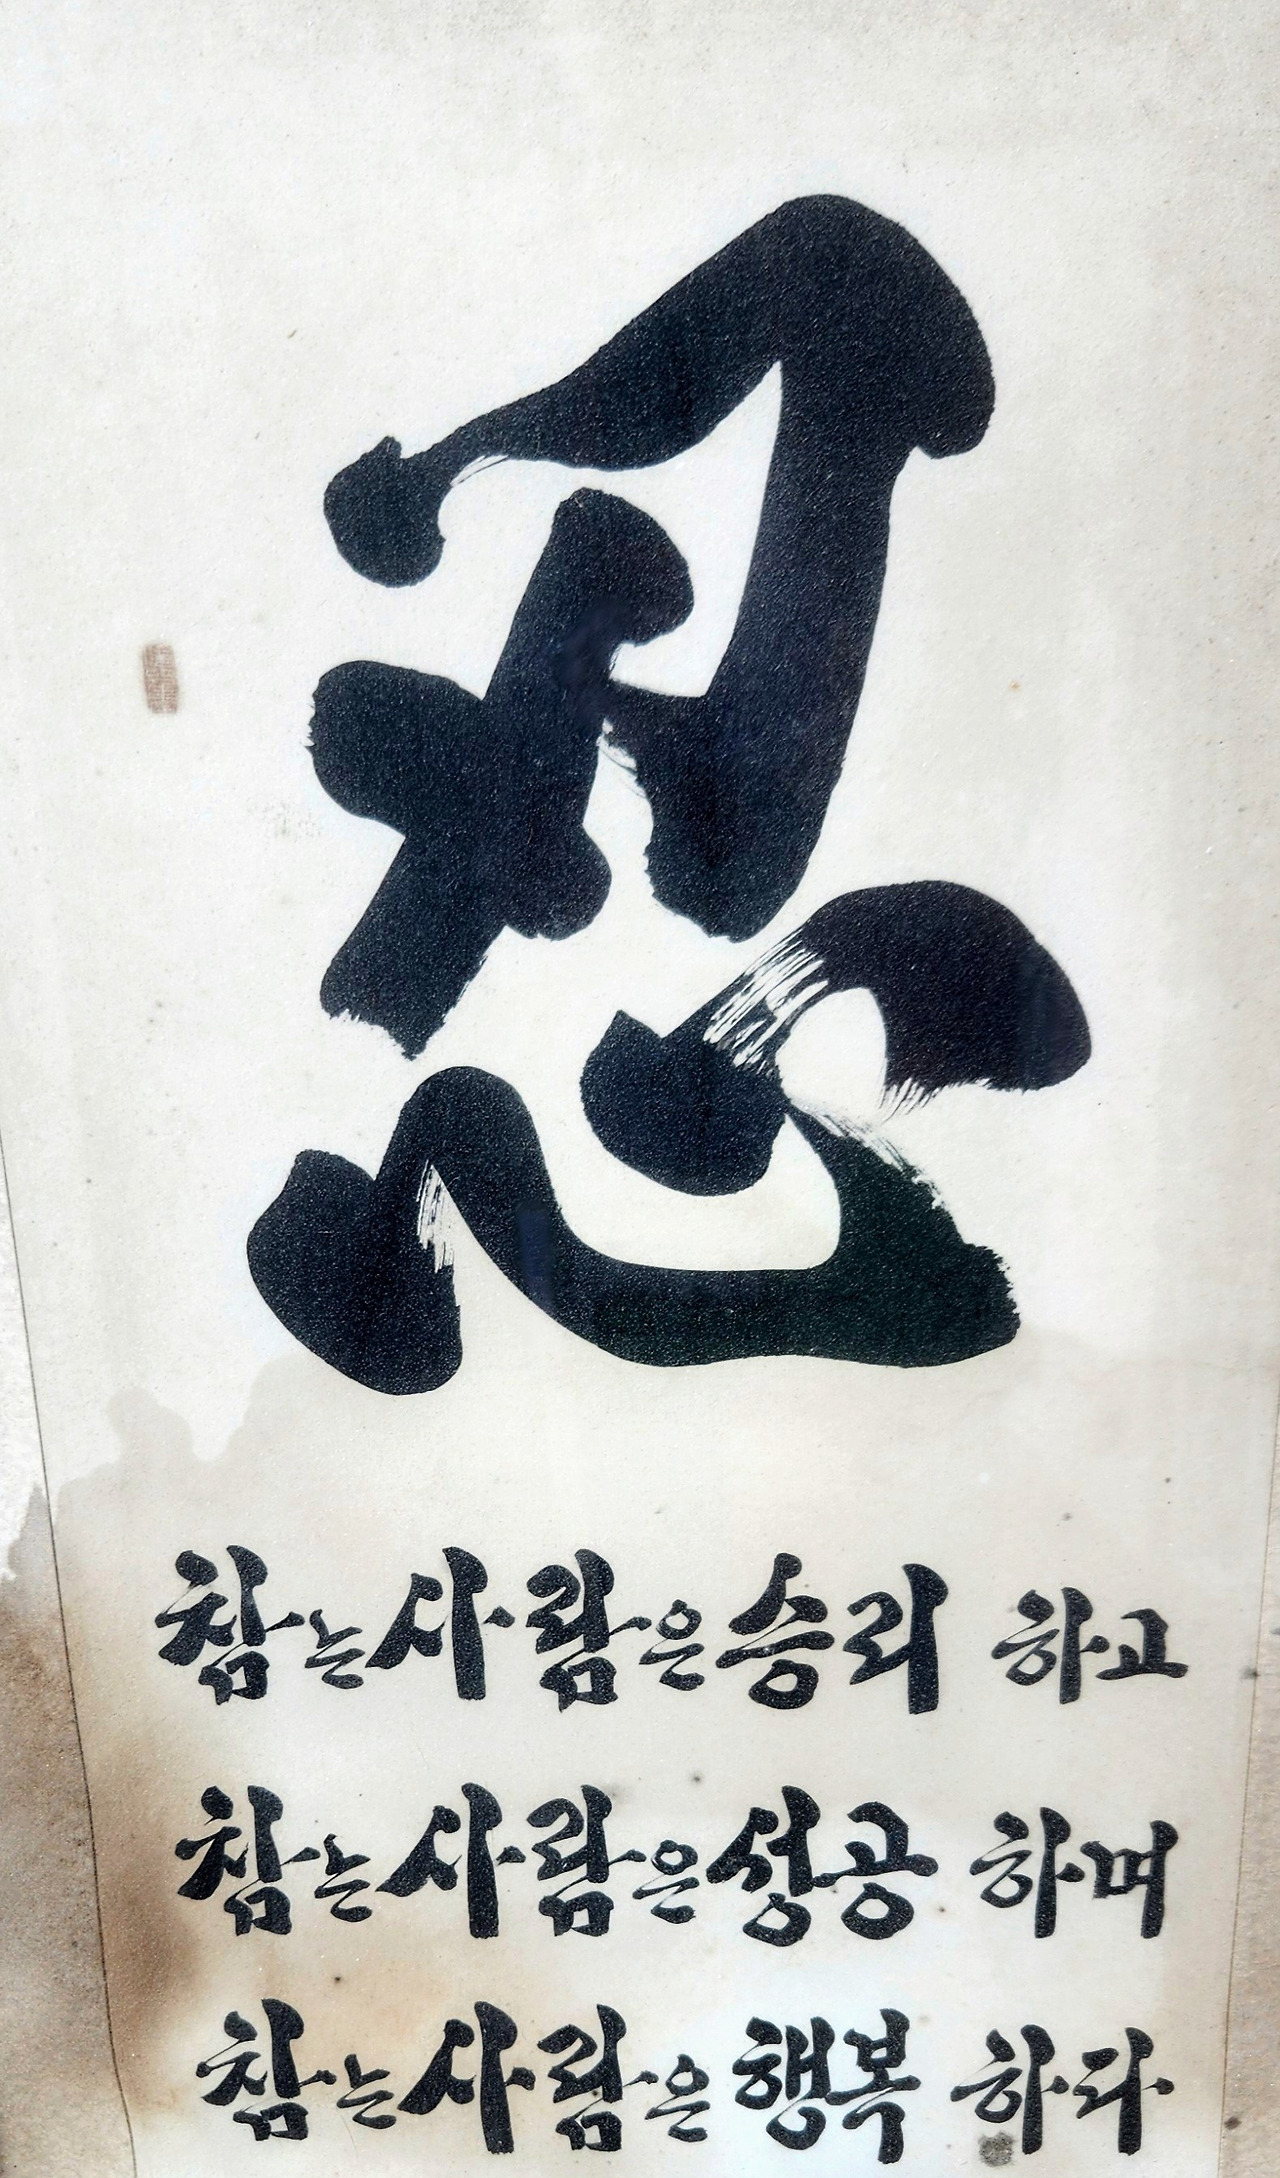 忍
참는사람은승리 하고
참는사람은성공 하며
참는사람은행복 하라